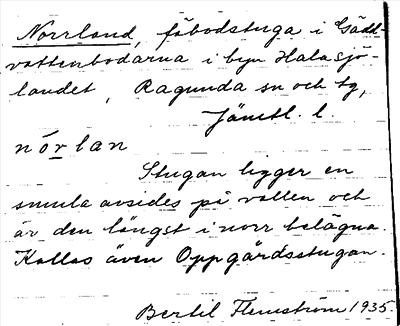 Norrland, fäbodstuga i Gädd-
vattenbodarna i byn Halasjö-
landet, Ragunda sn och tg,
Jämtl. l.
nórlan
Stugan ligger en
smula avsides på vallen och
är den längst i norr belägna.
Kallas även Oppgårdsstugan.
Bertil Flemström 1935.